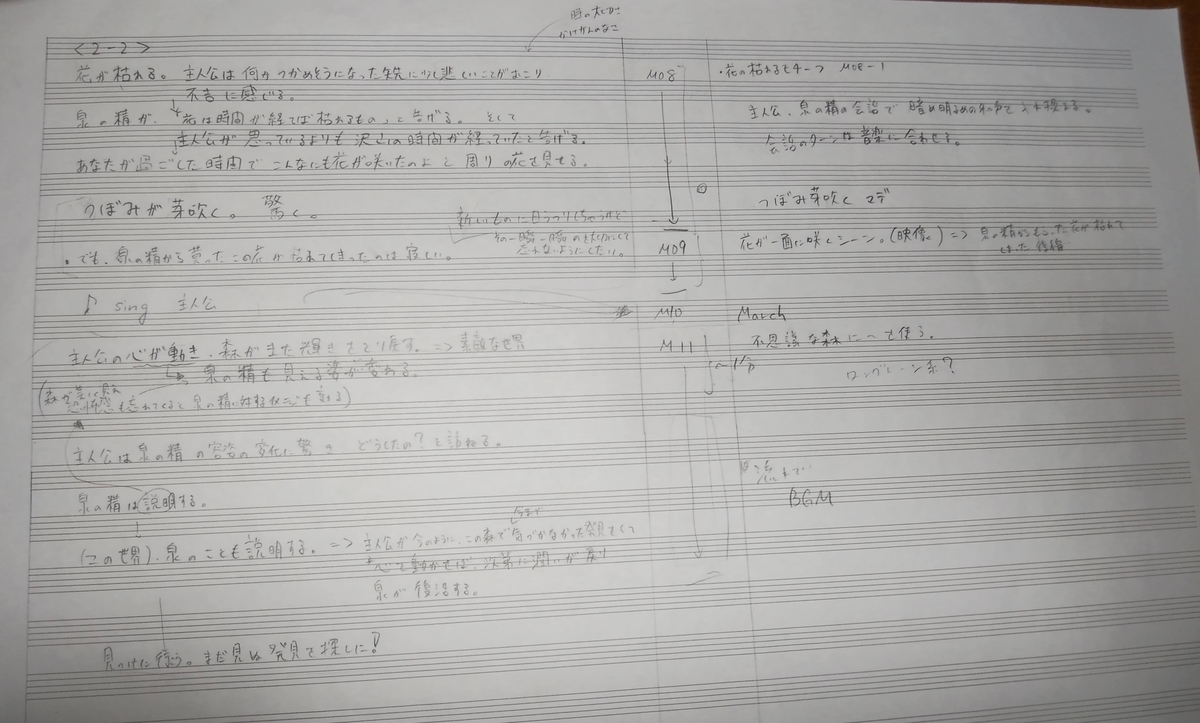 時の大切さ
かけがえのなさ
<2-2>
花が枯れる。主人公は何かつかめそうになった矢先に少し悲しいことがおこり
不吉に感じる。
泉の精が、「花は時間が経てば枯れるもの」と告げる。そして
主人公が思っているよりも沢山の時間が経っていたと告げる。
あなたが過ごした時間でこんなにも花が咲いたのよと周りの花を見せる。
つぼみが芽吹く。 驚く。
新しいものに目うつりしちゃうけど
その一瞬一瞬の を大切にして
忘れないようにしたい。
・でも、泉の精から貰ったこの花が枯れてしまったのは寂しい。
♪ sing 主人公
主人公の心が動き、森がまた輝きをとり戻す。=> 素敵な世界
泉の精も見える姿が変わる。
主人公は泉の精の容姿の変化に驚き、どうしたの?と訪ねる。
泉の精は説明する。
(この世界)、泉のことも説明する。=> 主人公が今のように、この森で今まで気づかなかった発見をして
心を動かせば、次第に潤いが戻り
泉が復活する。
見つけに行こう。まだ見ぬ発見を探しに!
M08
M09
M10
M11
・花の枯れるモチーフ M08-1
主人公、泉の精の会話で暗め明るめの
会話のターンは音楽に合わせる。
つぼみ芽吹くマデ
花が一面に咲くシーン。(映像) => 泉の精からもらった花が枯れて
しまった
March
不思議な森に〜を使う。
ロングトーン系?
流れで
BGM